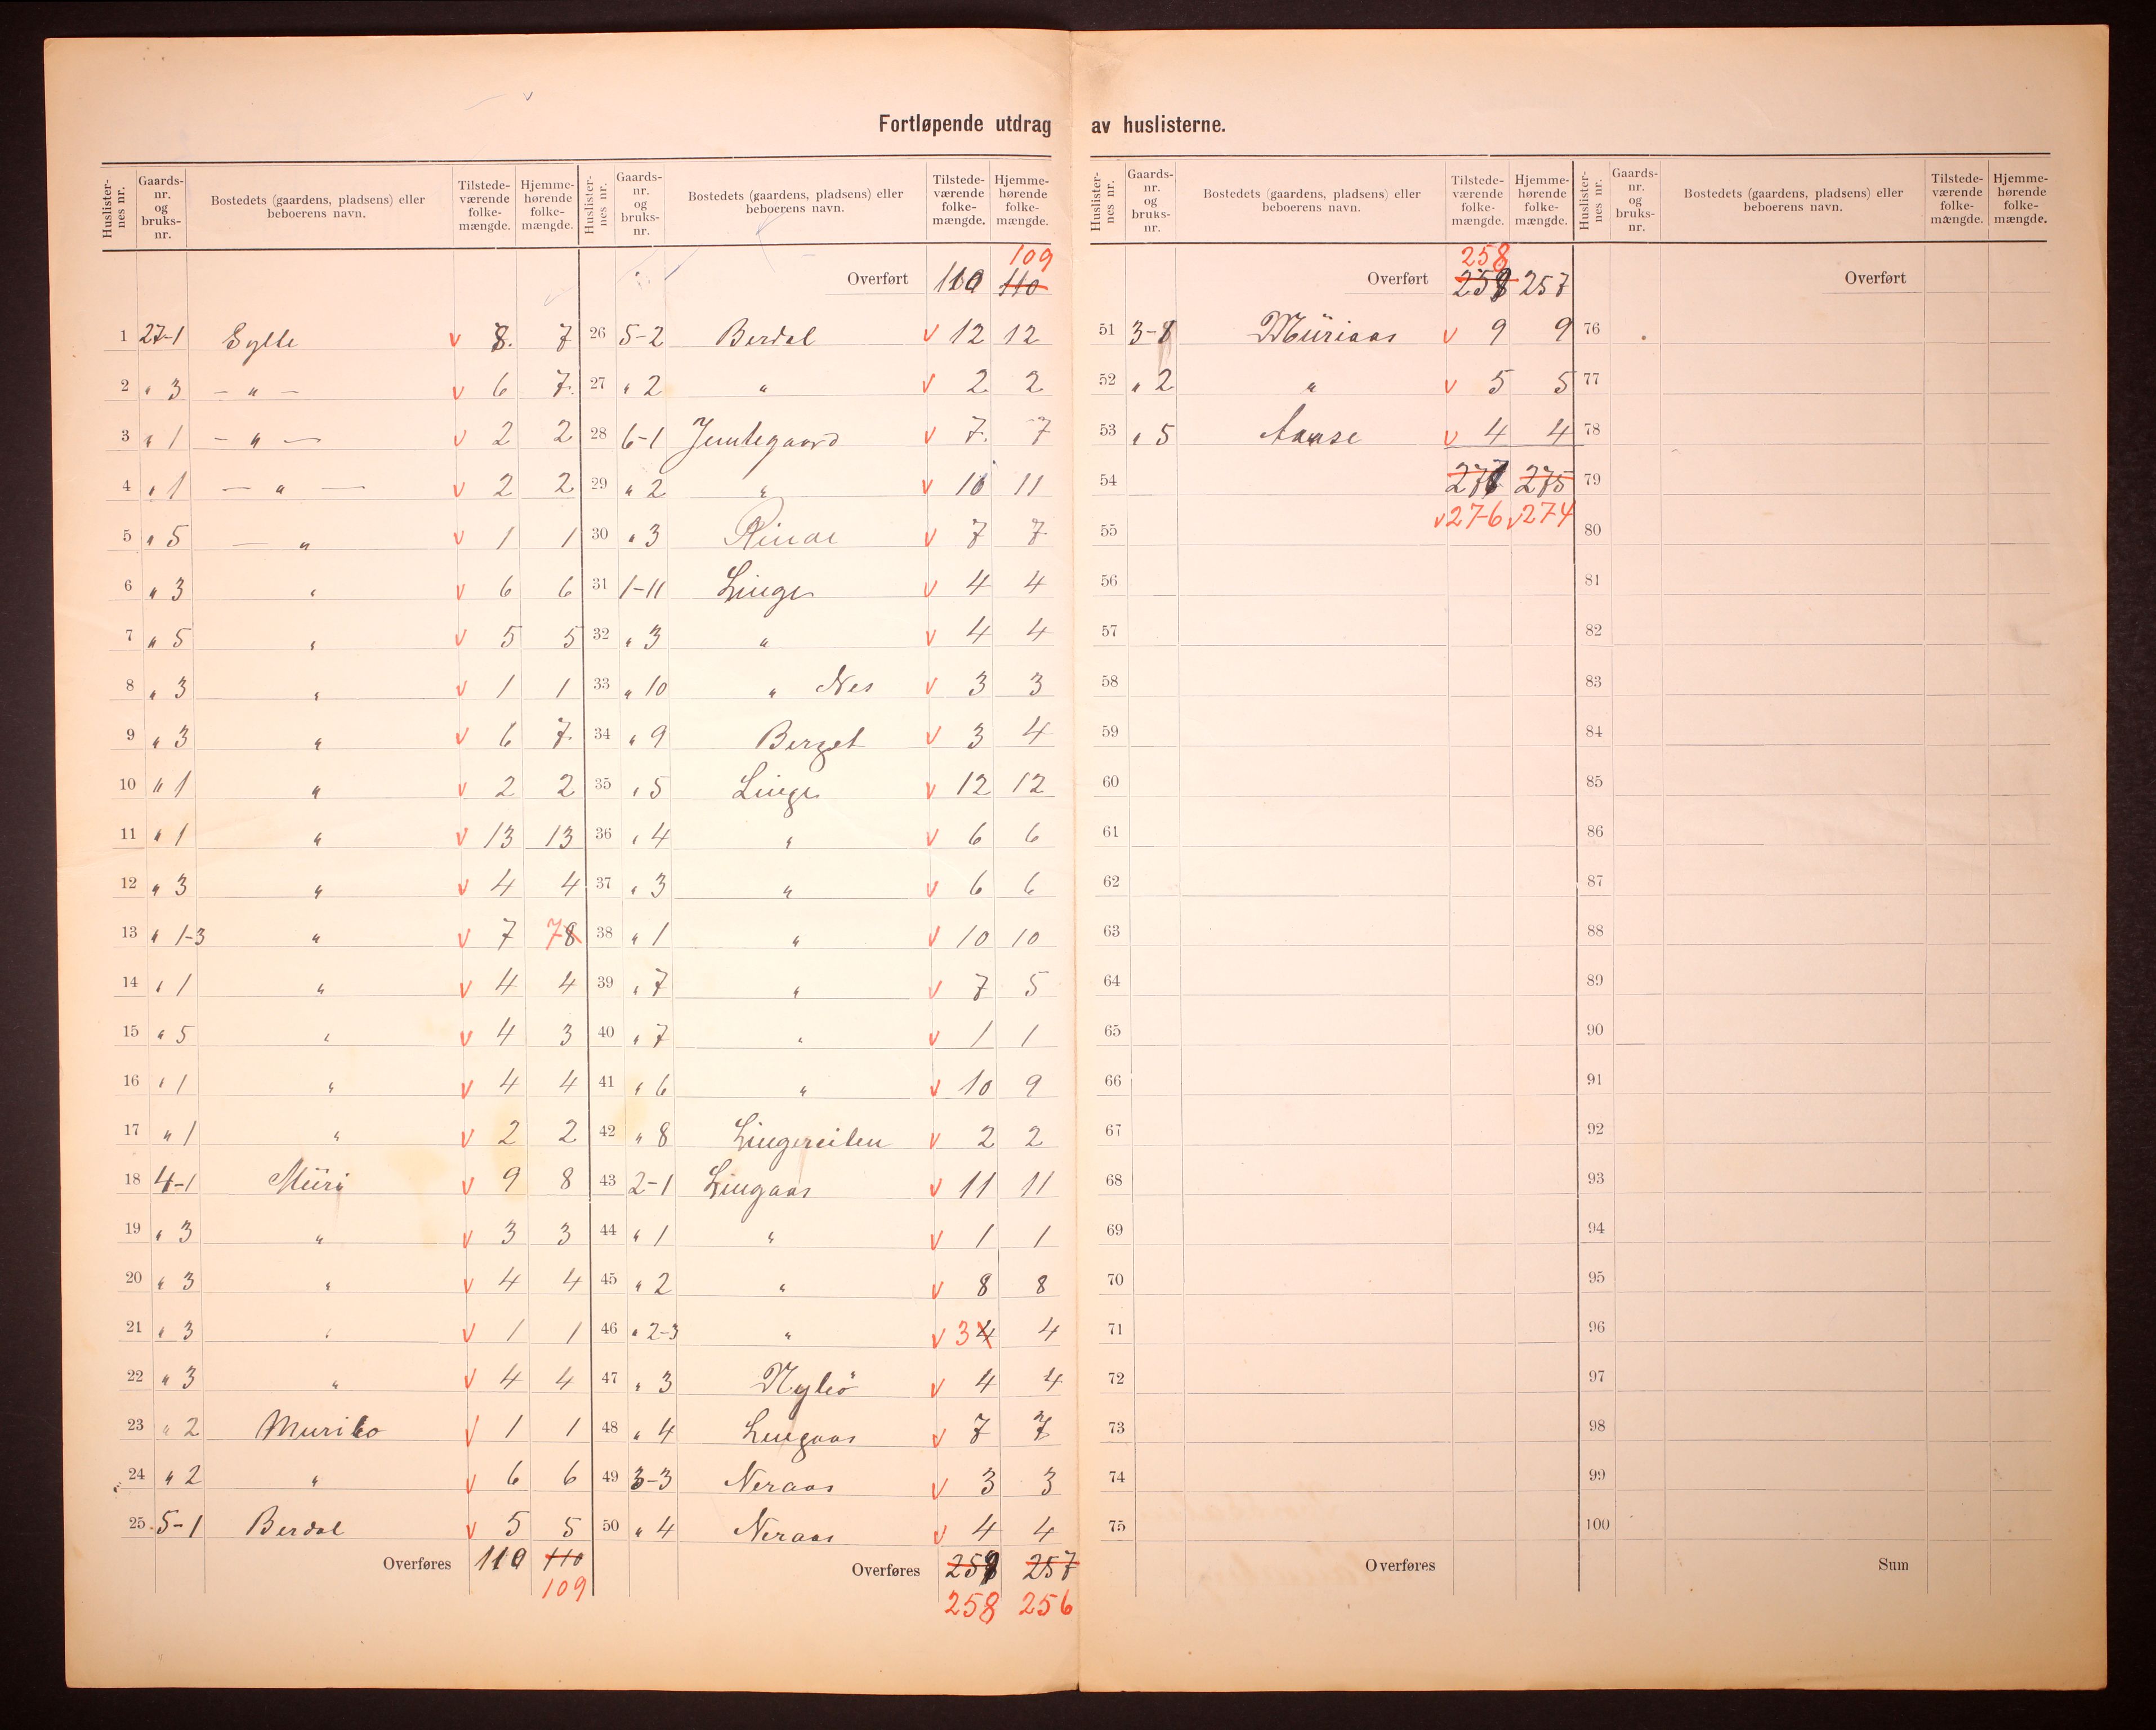 Fortløpende utdrag av huslisterne.
Huslisternes nr. Gaardsnr. og bruksnr. Bostedets (gaardens, pladsens) eller beboerens navn. Tilstedeværende folkemængde. Hjemmehørende folkemængde.
1 27-1 Sylte v 8. 7
2 " 3 — " — v 6 7.
3 " 1 — " — v 2 2
4 " 1 — " — v 2 2
5 " 5 — " v 1 1
6 " 3 " v 6 6
7 " 5 " v 5 5
8 " 3 " v 1 1
9 " 3 " v 6 7.
10 " 1 " v 2 2
11 " 1 " v 13 13
12 " 3 " v 4 4
13 " 1-3 " v 7 7 8
14 " 1 " v 4 4
15 " 5 " v 4 3
16 " 1 " v 4 4
17 " 1 " v 2 2
18 4-1 Müri v 9 8
19 " 3 " v 3 3
20 " 3 " v 4 4
21 " 3 " v 1 1
22 " 3 " v 4 4
23 " 2 Muribo v 1 1
24 " 2 " v 6 6
25 5-1 Berdal v 5 5
Overføres 110 110
109
Huslisternes nr. Gaardsnr. og bruksnr. Bostedets (gaardens, pladsens) eller beboerens navn. Tilstedeværende folkemængde. Hjemmehørende folkemængde.
109
Overført 110 110
26 5-2 Berdal v 12 12
27 " 2 " v 2 2
28 6-1 Jemtegaard v 7. 7
29 " 2 " v 10 11
30 " 3 v 7 7
31 1-11 Linge v 4 4
32 " 3 " v 4 4
33 " 10 " Nes v 3 3
34 " 9 Berget v 3 4
35 " 5 Linge v 12 12
36 " 4 " v 6 6
37 " 3 " v 6 6
38 " 1 " v 10 10
39 " 7 " v 7 5
40 " 7 " v 1 1
41 " 6 " v 10 9
42 " 8 v 2 2
43 2-1 Lingaas v 11 11
44 " 1 " v 1 1
45 " 2 " v 8 8
46 " 2-3 " v 3 4 4
47 " 3 v 4 4
48 " 4 Lingaas v 7 7
49 3-3 Neraas v 3 3
50 " 4 Neraas v 4 4
Overføres 259 257
258 256
Huslisternes nr. Gaardsnr. og bruksnr. Bostedets (gaardens, pladsens) eller beboerens navn. Tilstedeværende folkemængde. Hjemmehørende folkemængde.
258
Overført 259 257
51 3-8 Müriaas v 9 9
52 " 2 " v 5 5
53 " 5 Aaase v 4 4
54 277 275
55 v 276 v 274
56
57
58
59
60
61
62
63
64
65
66
67
68
69
70
71
72
73
74
75
Overføres
Huslisternes nr. Gaardsnr. og bruksnr. Bostedets (gaardens, pladsens) eller beboerens navn. Tilstedeværende folkemængde. Hjemmehørende folkemængde.
Overført
76
77
78
79
80
81
82
83
84
85
86
87
88
89
90
91
92
93
94
95
96
97
98
99
100
Sum